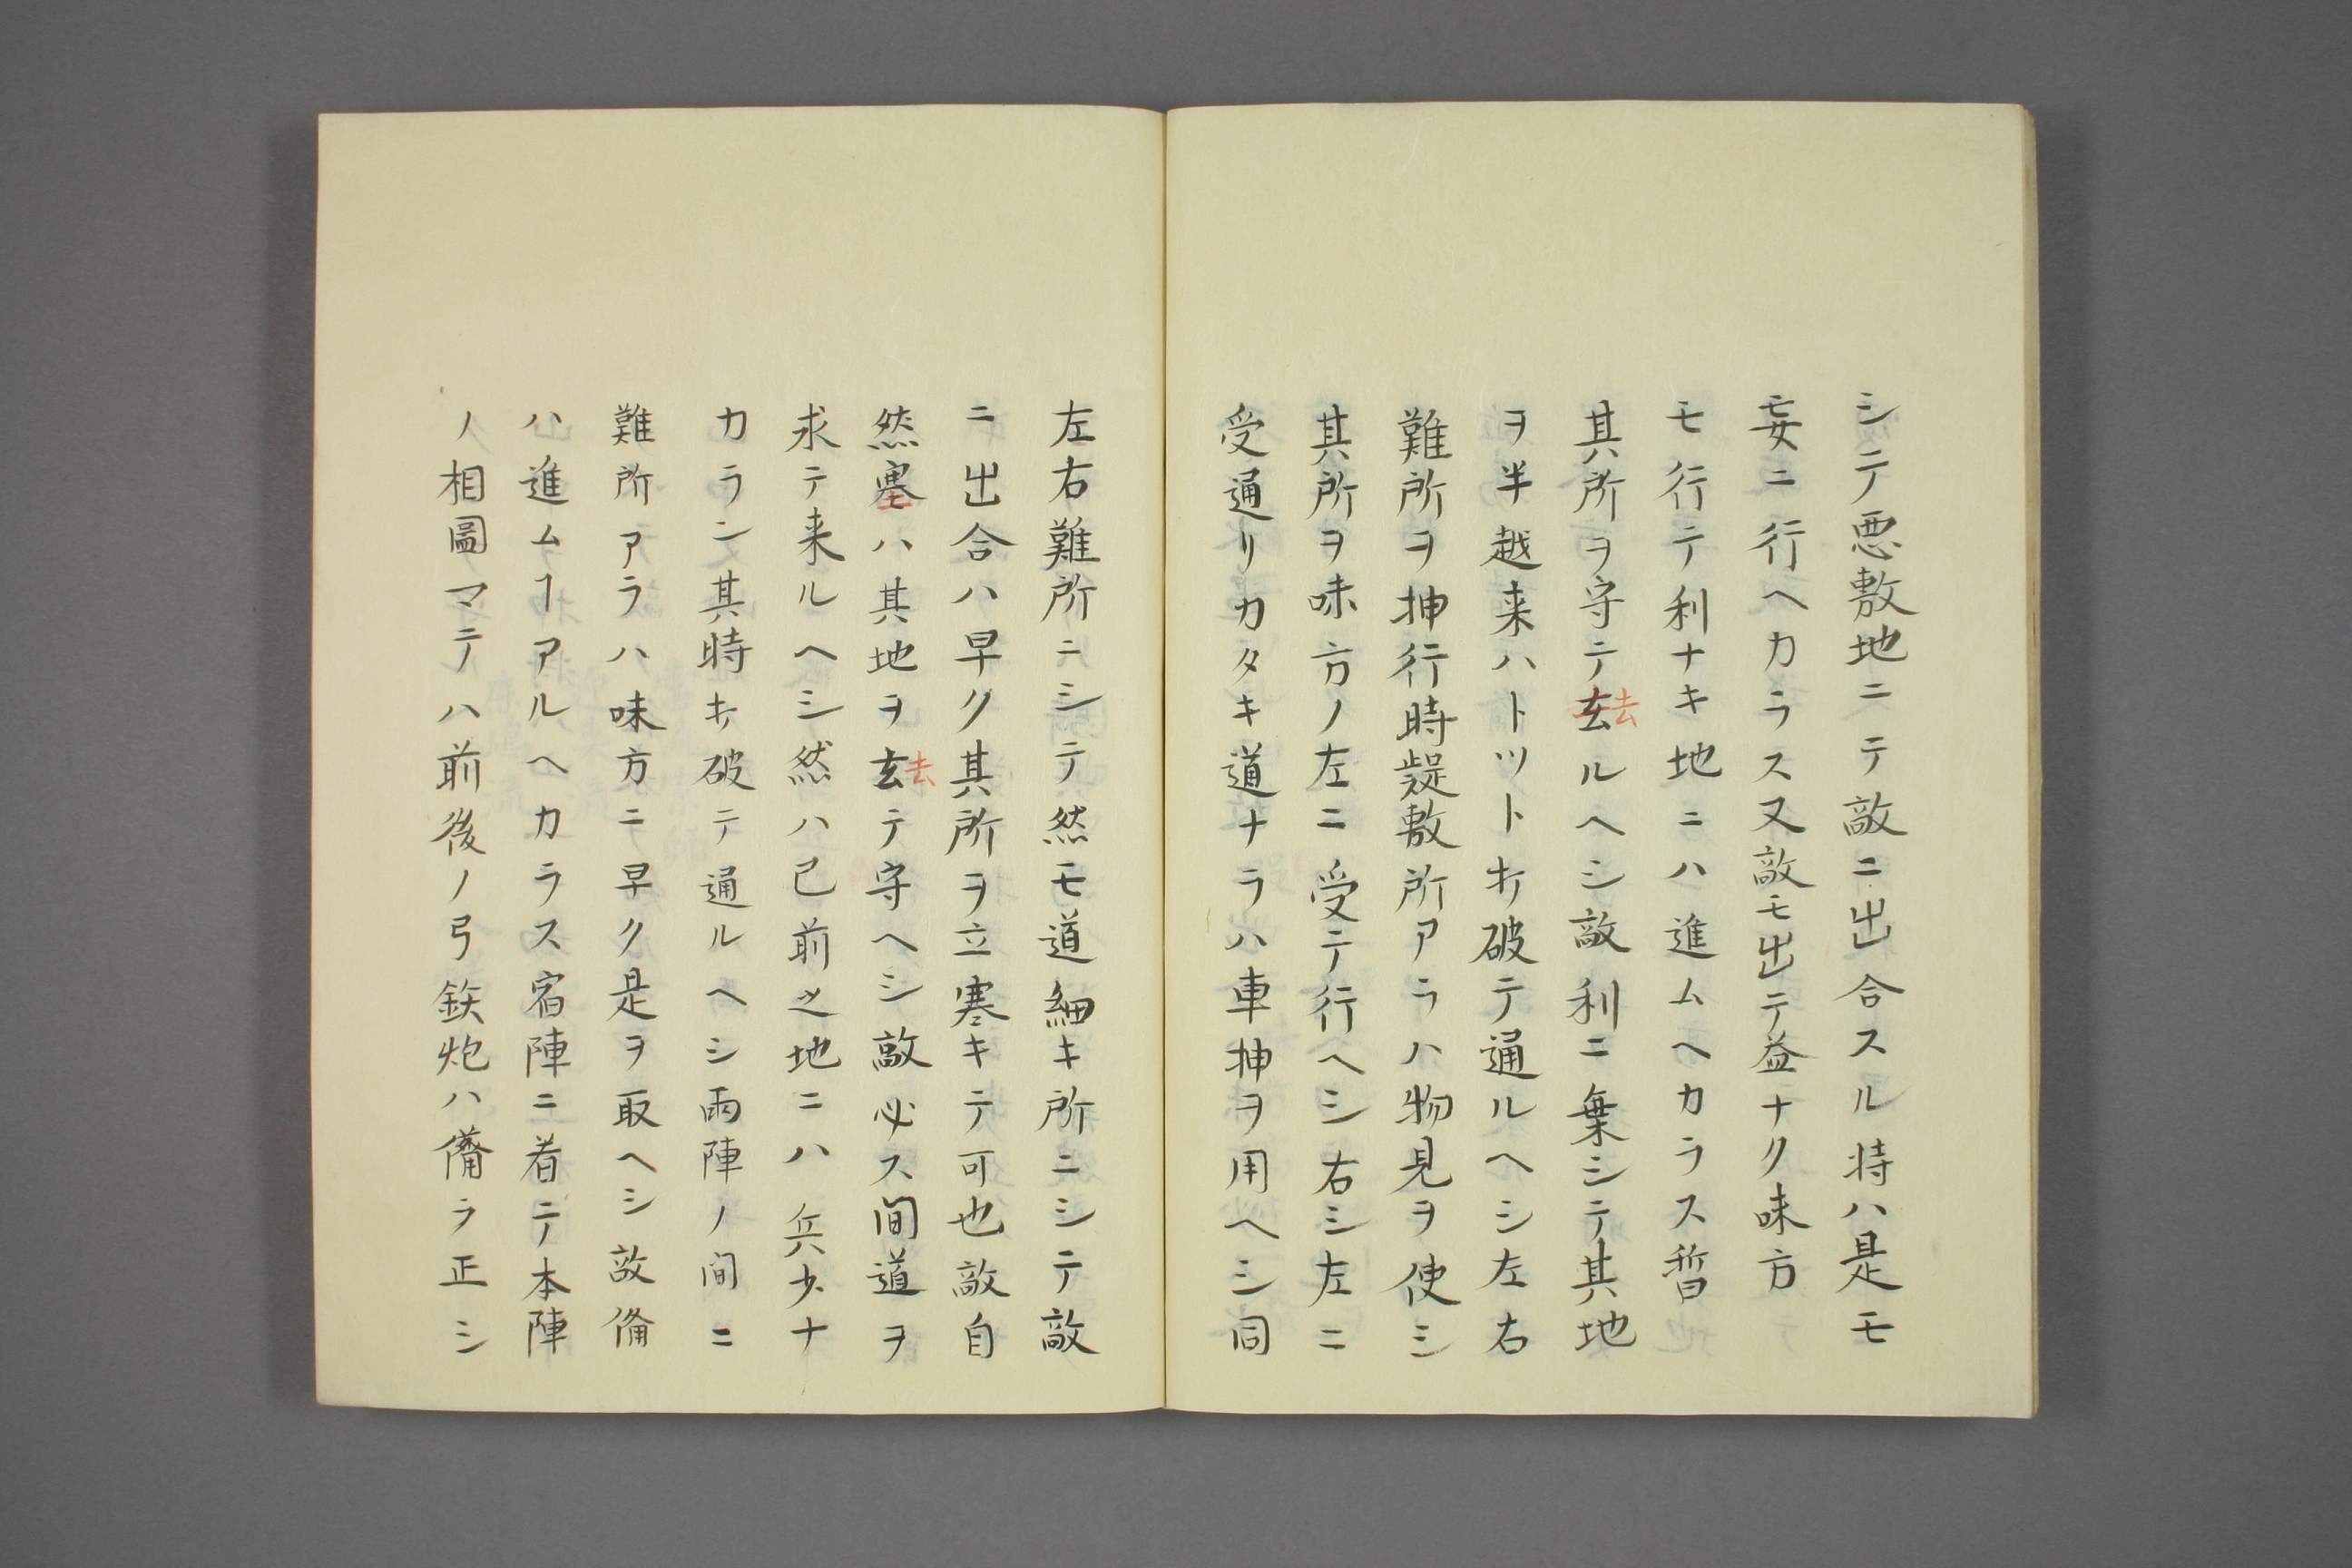 シテ悪敷地ニテ敵ニ出合スル時ハ是モ
妄ニ行ヘカラス又敵モ出テ益ナク味方
モ行テ利ナキ地ニハ進ムヘカラス暫
其所ヲ守テ玄去ルヘシ敵利ニ棄シテ其地
ヲ半越来ハトツトキ破テ通ルヘシ左右
難所ヲ押行時敷所アラハ物見ヲ使シ
其所ヲ味方ノ左ニ受テ行ヘシ右シ左ニ
受通リカタキ道ナラハ車押ヲ用ヘシ同
左右難所ニシテ然モ道細キ所ニシテ敵
ニ出合ハ早ク其所ヲ立塞キテ可也敵自
然塞ハ其地ヲ玄去テ守ヘシ敵必ス間道ヲ
求テ来ルヘシ然ハ已前之地ニハ兵少ナ
カラン其時キ破テ通ルヘシ兩陣ノ間ニ
難所アラハ味方ニ早ク是ヲ取ヘシ敵備
ハ進ムヿアルヘカラス宿陣ニ着テ本陣
ノ相圖マテハ前後ノ弓鉄炮ハ備ラ正シ